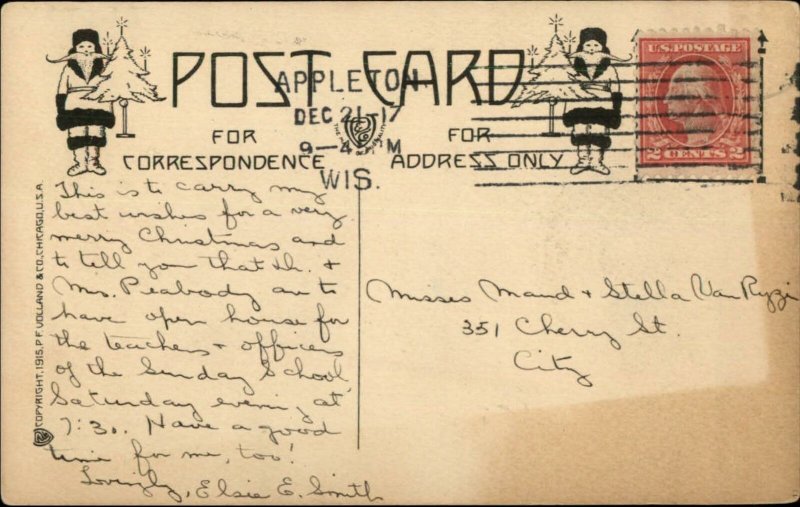 POST CARD
APPLETON
DEC 21 17
9-4 M
WIS.
FOR CORRESPONDENCE
FOR ADDRESS ONLY
U.S. POSTAGE
2 CENTS 2
COPYRIGHT, 1915, P.F. VOLLAND & CO. CHICAGO, U.S.A.
This is to carry my
best wishes for a very
merry Christmas and
to tell you that Dr. +
Mrs. Peabody are to
have open house for
the teachers + officers
of the Sunday School
Saturday evening at
7:30. Have a good
time for me, too!
Lovingly, Elsie E. Smith
Misses Maud + Stella Van Ryzin
351 Cherry St.
City